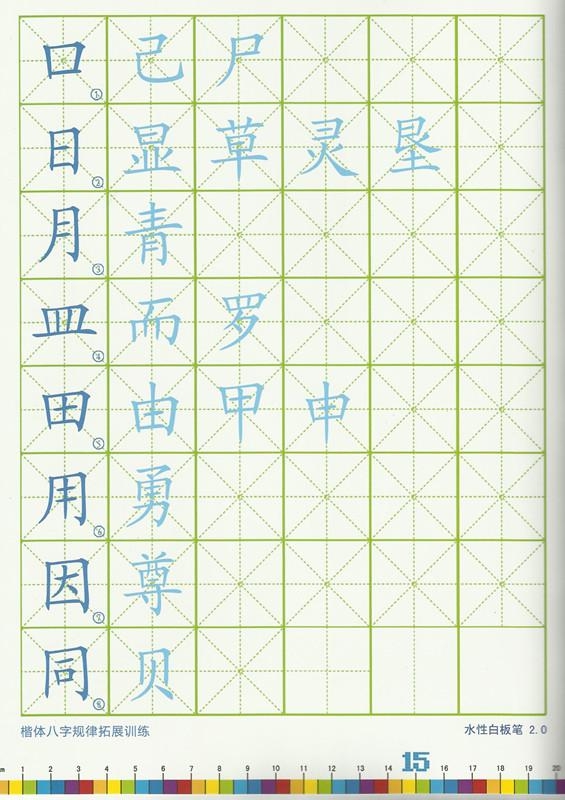 口 ① 己 尸
日 ② 显 草 灵 垦
月 ③ 青
皿 ④ 而 罗
田 ⑤ 由 甲 申
用 ⑥ 勇
因 ⑦ 尊
同 ⑧ 贝
楷体八字规律拓展训练 水性白板笔 2.0
15
m 1 2 3 4 5 6 7 8 9 10 11 12 13 14 15 16 17 18 19 20